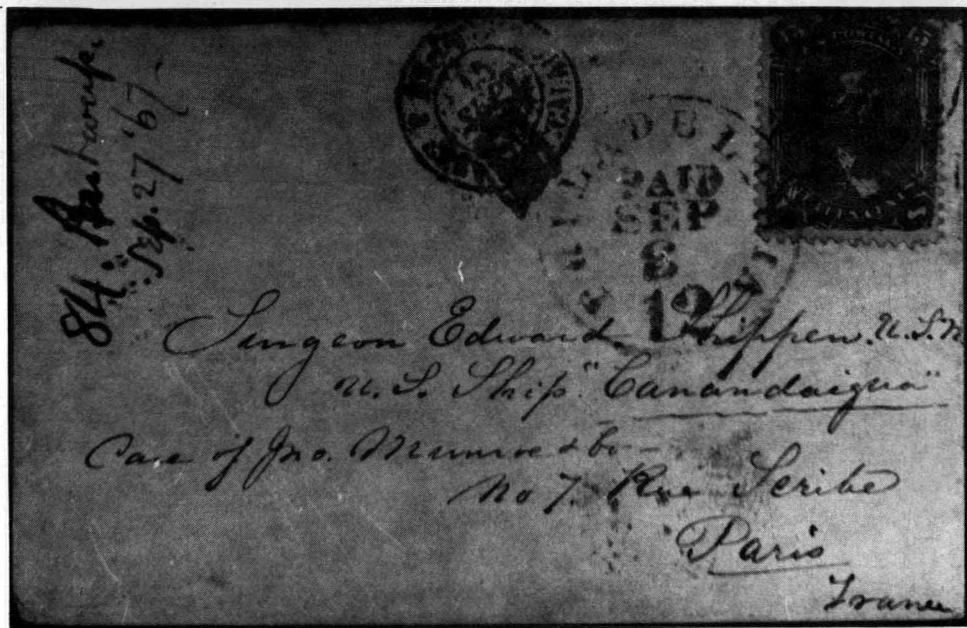 84. Antwerp.
Sep. 27 '67
PHILADELPHIA
PAID
SEP
12
15 15
Surgeon Edward Shippen. U.S.N
U.S. Ship "Canandaigua"
Care of Jno. Munroe & Co—
No 7. Rue Scribe
Paris
France